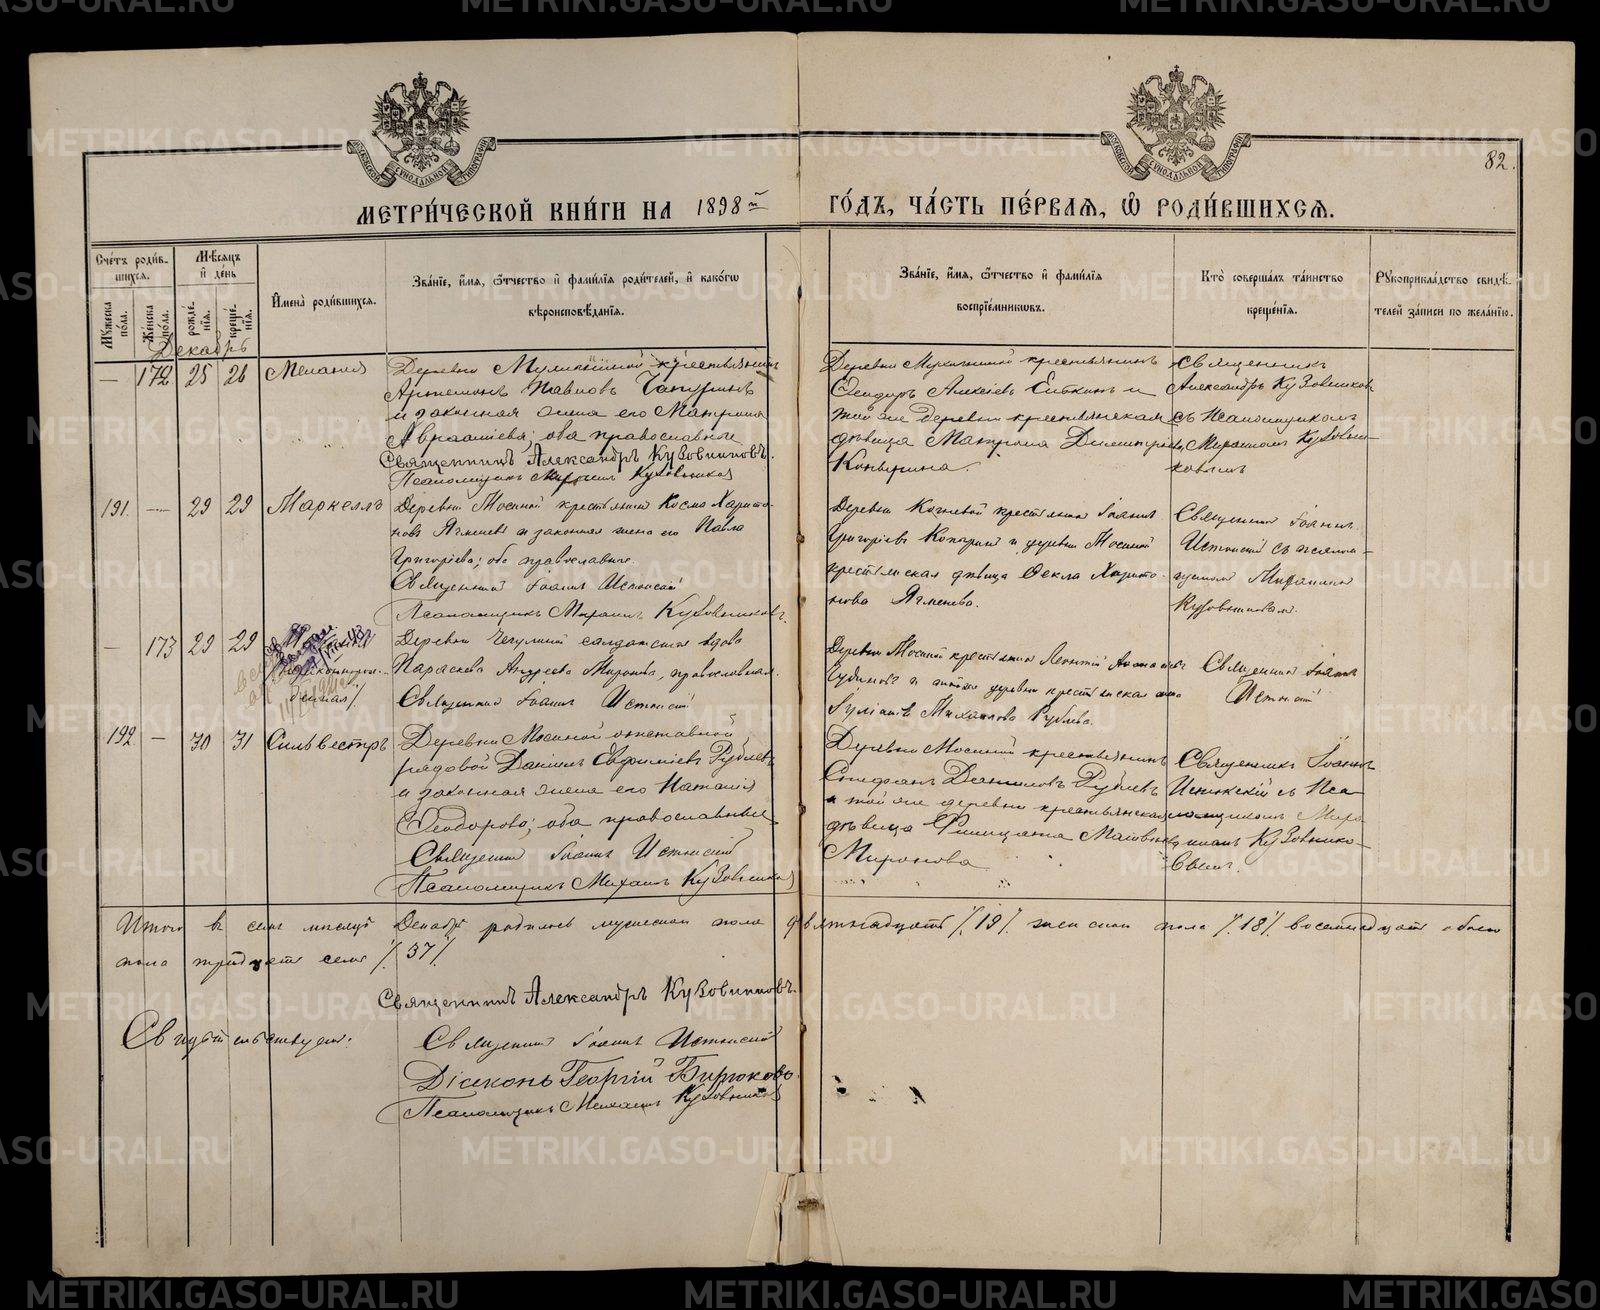 82.
МЕТРИ́ЧЕСКОЙ КНИ́ГИ НА 1898й ГО́ДЪ, ЧА́СТЬ ПЕ́РВАЯ, Ѡ РОДИ́ВШИХСЯ.
Сче́тъ роди́вшихся.
Му́жеска по́ла.
Же́нска по́ла.
Мѣ́сяцъ и҆ де́нь
рожде́нїѧ.
креще́нїѧ.
И҆мена̀ роди́вшихся.
Зва́нїе, и҆́мя, ѻ҆́тчество и҆ фами́лїя роди́телей, и҆ како́гѡ вѣроисповѣ́данїя.
Зва́нїе, и҆́мя, ѻ҆́тчество и҆ фами́лїя воспрїе́мниковъ.
Кто̀ соверша́лъ та́инство креще́нїя.
Рꙋкоприкла́дство свидѣ́телей за́писи по жела́нїю.
Декабрь
— 172 25 26 Меланія
Деревни крестьянинъ
Артемонъ Павловъ Чапуринъ
и законная жена его Матрона
оба православные
Священникъ Александръ Кузовниковъ.
Псаломщикъ Михаилъ Кузовниковъ
Деревни крестьянинъ
Алексѣевъ и
той же деревни крестьянская
дѣвица Матрона Димитріева
Копырина
Священникъ
Александръ Кузовников
съ Псаломщикомъ
Михаиломъ Кузовни-
ковымъ
191. — 29 29 Маркеллъ
Деревни Мосиной крестьянинъ Косма Харито-
новъ Ячменевъ и законная жена его Павла
Григоріева; оба православные.
Священникъ Іоаннъ Истокскій
Псаломщикъ Михаилъ Кузовниковъ.
Деревни крестьянинъ Іоаннъ
Григоріевъ Копыринъ и деревни Мосиной
крестьянская дѣвица Ѳекла Харито-
нова Ячменева.
Священникъ Іоаннъ
Истокскій съ псалом-
щикомъ Михаиломъ
Кузовниковымъ.
— 173 29 29
Деревни солдатская вдова
Параскева Андреева Миронова, православная.
Священникъ Іоаннъ Истокскій
Деревни Мосиной крестьянинъ Леонтій
и деревни крестьянская
Михайлова Рублева.
Священникъ Іоаннъ
Истокскій
192. — 30 31 Сильвестръ
Деревни Мосиной отставной
рядовой Даніилъ Евфиміевъ Рублевъ
и законная жена его Наталія
Ѳеодорова; оба православные
Священникъ Іоаннъ Истокскій
Псаломщикъ Михаилъ Кузовниковъ
Деревни Мосиной крестьянинъ
Стефанъ Даниловъ Рублевъ
и той же деревни крестьянская
дѣвица Матвѣева
Миронова
Священникъ Іоаннъ
Истокскій съ Пса-
ломщикомъ Миха-
иломъ Кузовнико-
вымъ.
Итого въ семъ мѣсяцѣ Декабрѣ родилось мужескаго пола девятнадцать /19/ женскаго пола /18/ восемнадцать обоего
пола тридцать семь /37/
Священникъ Александръ Кузовниковъ.
Свидѣтельствуемъ:
Священникъ Іоаннъ Истокскій
Діаконъ Георгій Бирюковъ.
Псаломщикъ Михаилъ Кузовниковъ
METRIKI.GASO-URAL.RU